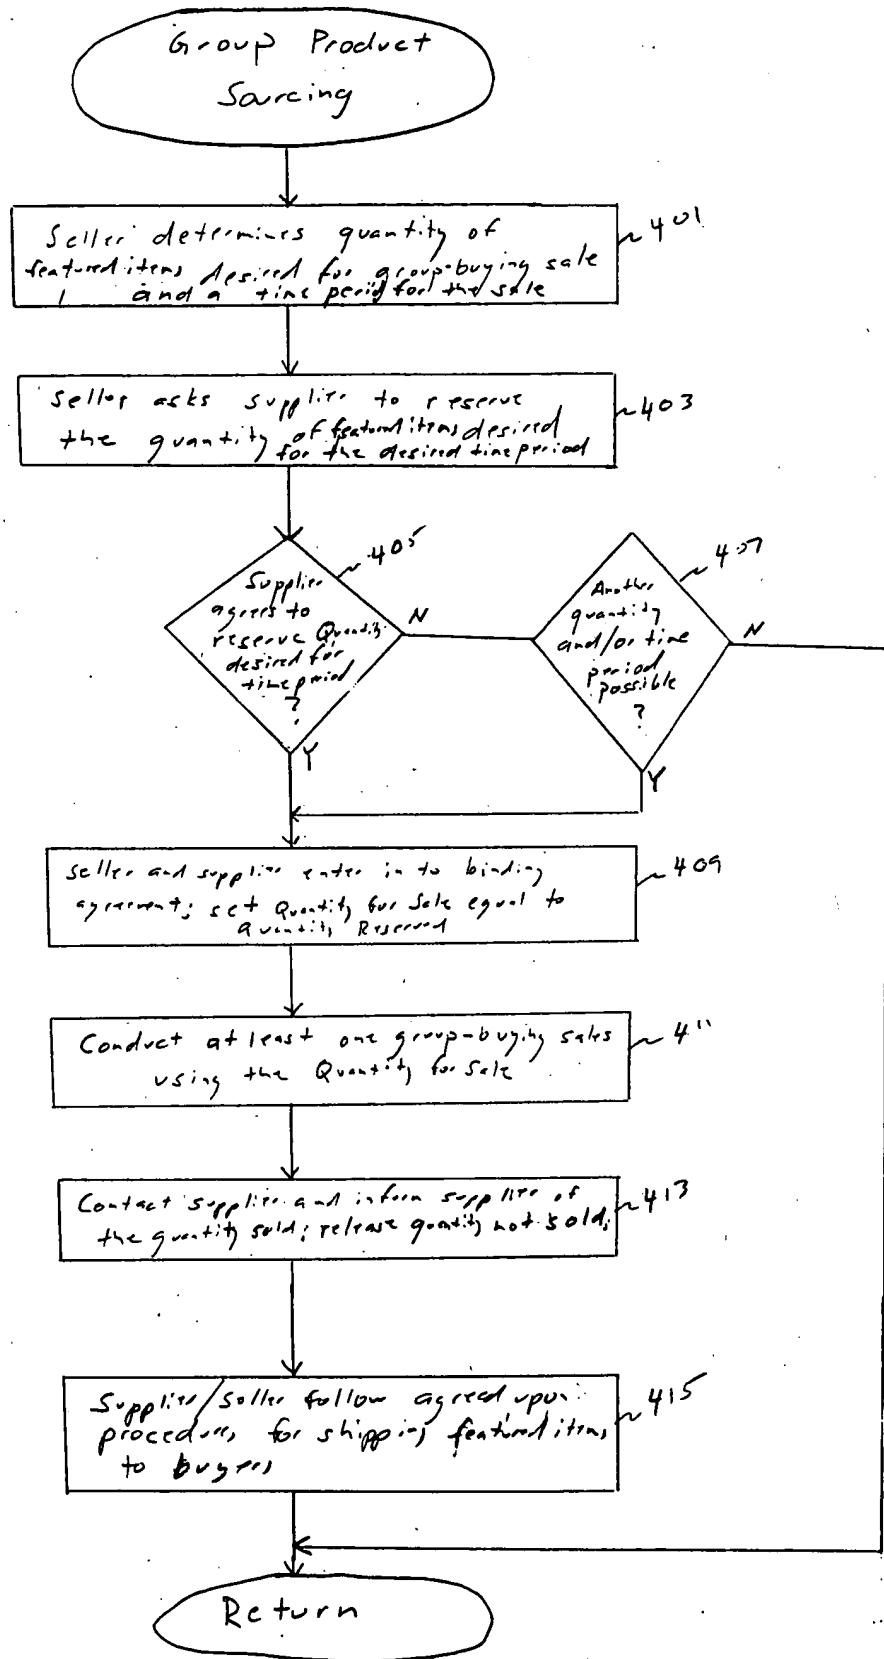 Group Product
Sourcing
Seller determines quantity of
featured items desired for group-buying sale
and a time period for the sale
401
Seller asks supplier to reserve
the quantity of featured items desired
for the desired time period
403
405
Supplier
agrees to
reserve Quantity
desired for
time period
?
N
Y
407
Another
quantity
and/or time
period
possible
?
N
Y
Seller and supplier enter in to binding
agreement; set Quantity for Sale equal to
Quantity Reserved
409
Conduct at least one group-buying sales
using the Quantity for Sale
411
Contact supplier and inform supplier of
the quantity sold; release quantity not sold.
413
Supplier/Seller follow agreed upon
procedures for shipping featured items
to buyers
415
Return